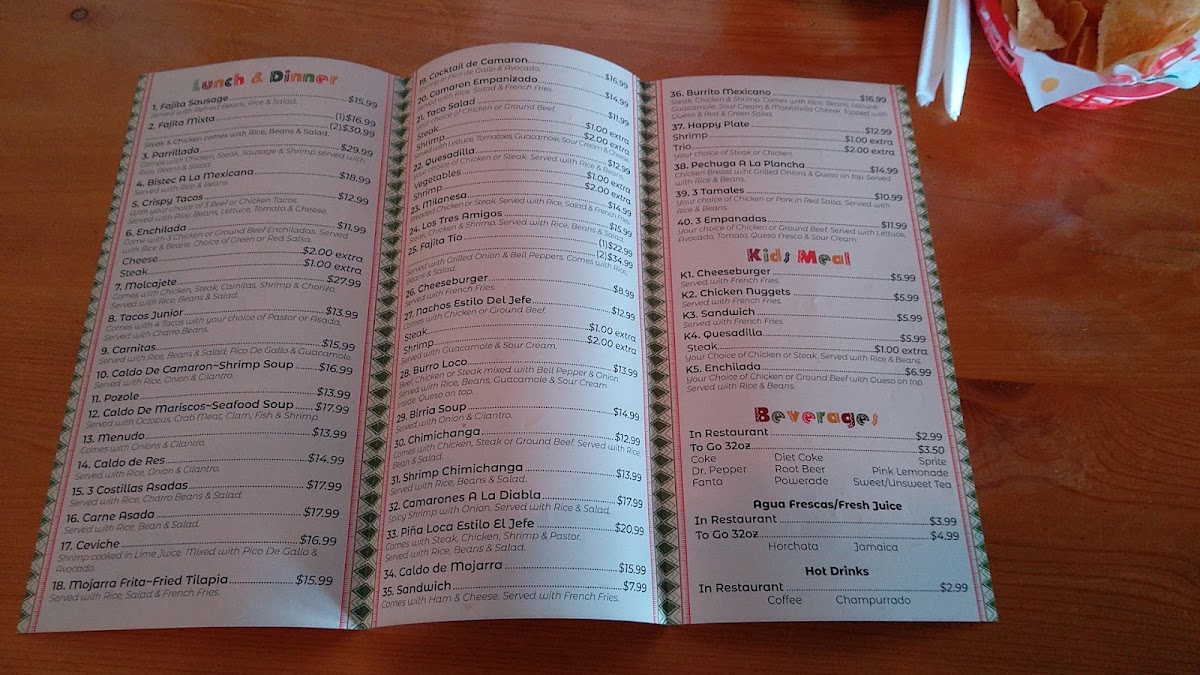 Lunch & Dinner
1. Fajita Sausage $15.99
Served with Refried Beans, Rice & Salad.
2. Fajita Mixta (1)$16.99
(2)$30.99
Steak & Chicken comes with Rice, Beans & Salad.
3. Parrillada $29.99
Comes with Chicken, Steak, Sausage & Shrimp served with
Rice, Beans & Salad.
4. Bistec A La Mexicana $18.99
Served with Rice & Beans.
5. Crispy Tacos $12.99
With your choice of 3 Beef or Chicken Tacos.
Served with Rice, Beans, Lettuce, Tomato & Cheese.
6. Enchilada $11.99
Come with 3 Chicken or Ground Beef Enchiladas. Served
with Rice & Beans. Choice of Green or Red Salsa.
Cheese $2.00 extra
Steak $1.00 extra
7. Molcajete $27.99
Comes with Chicken, Steak, Carnitas, Shrimp & Chorizo.
Served with Rice, Beans & Salad.
8. Tacos Junior $13.99
Comes with 4 Tacos with your choice of Pastor or Asada,
Served with Charro Beans.
9. Carnitas $15.99
Served with Rice, Beans & Salad, Pico De Gallo & Guacamole.
10. Caldo De Camaron~Shrimp Soup $16.99
Served with Rice, Onion & Cilantro.
11. Pozole $13.99
12. Caldo De Mariscos~Seafood Soup $17.99
Served with Octopus, Crab Meat, Clam, Fish & Shrimp.
13. Menudo $13.99
Comes with Onions & Cilantro.
14. Caldo de Res $14.99
Served with Rice, Onion & Cilantro.
15. 3 Costillas Asadas $17.99
Served with Rice, Charro Beans & Salad.
16. Carne Asada $17.99
Served with Rice, Bean & Salad.
17. Ceviche $16.99
Shrimp cooked in Lime Juice. Mixed with Pico De Gallo &
Avocado.
18. Mojarra Frita~Fried Tilapia $15.99
Served with Rice, Salad & French Fries.
19. Cocktail de Camaron $16.99
Shrimp in Pico de Gallo & Avocado.
20. Camaron Empanizado $14.99
Served with Rice, Salad & French Fries.
21. Taco Salad $11.99
Your choice of Chicken or Ground Beef
Steak $1.00 extra
Shrimp $2.00 extra
Served with Lettuce, Tomatoes, Guacamole, Sour Cream & Cheese
22. Quesadilla $12.99
Your choice of Chicken or Steak. Served with Rice & Beans,
Vegetables $1.00 extra
Shrimp $2.00 extra
23. Milanesa $14.99
Breaded Chicken or Steak, Served with Rice, Salad & French Fries
24. Los Tres Amigos $15.99
Steak, Chicken & Shrimp. Served with Rice, Beans & Salad.
25. Fajita Tio (1)$22.99
(2)$34.99
Served with Grilled Onion & Bell Peppers. Comes with Rice,
Beans & Salad.
26. Cheeseburger $8.99
Served with French Fries.
27. Nachos Estilo Del Jefe $12.99
Comes with Chicken or Ground Beef.
Steak $1.00 extra
Shrimp $2.00 extra
Served with Guacamole & Sour Cream.
28. Burro Loco $13.99
Beef, Chicken or Steak mixed with Bell Pepper & Onion.
Served with Rice, Beans, Guacamole & Sour Cream
inside Queso on top.
29. Birria Soup $14.99
Served with Onion & Cilantro.
30. Chimichanga $12.99
Comes with Chicken, Steak or Ground Beef. Served with Rice,
Bean & Salad.
31. Shrimp Chimichanga $13.99
Served with Rice, Beans & Salad.
32. Camarones A La Diabla $17.99
Spicy Shrimp with Onion. Served with Rice & Salad.
33. Piña Loca Estilo El Jefe $20.99
Comes with Steak, Chicken, Shrimp & Pastor.
Served with Rice, Beans & Salad.
34. Caldo de Mojarra $15.99
35. Sandwich $7.99
Comes with Ham & Cheese. Served with French Fries.
36. Burrito Mexicano $16.99
Steak, Chicken & Shrimp. Comes with Rice, Beans, Lettuce,
Guacamole, Sour Cream & Mozzarella Cheese. Topped with
Queso & Red & Green Salsa.
37. Happy Plate $12.99
Shrimp $1.00 extra
Trio $2.00 extra
Your choice of Steak or Chicken.
38. Pechuga A La Plancha $14.99
Chicken Breast wiht Grilled Onions & Queso on top. Served
with Rice & Beans.
39. 3 Tamales $10.99
Your choice of Chicken or Pork in Red Salsa. Served with
Rice & Beans.
40. 3 Empanadas $11.99
Your choice of Chicken or Ground Beef. Served with Lettuce,
Avocado, Tomato, Queso Fresco & Sour Cream.
Kids Meal
K1. Cheeseburger $5.99
Served with French Fries.
K2. Chicken Nuggets $5.99
Served with French Fries.
K3. Sandwich $5.99
Served with French Fries.
K4. Quesadilla $5.99
Steak $1.00 extra
Your Choice of Chicken or Steak. Served with Rice & Beans.
K5. Enchilada $6.99
Your Choice of Chicken or Ground Beef with Queso on top.
Served with Rice & Beans.
Beverages
In Restaurant $2.99
To Go 32oz $3.50
Coke Diet Coke Sprite
Dr. Pepper Root Beer Pink Lemonade
Fanta Powerade Sweet/Unsweet Tea
Agua Frescas/Fresh Juice
In Restaurant $3.99
To Go 32oz $4.99
Horchata Jamaica
Hot Drinks
In Restaurant $2.99
Coffee Champurrado